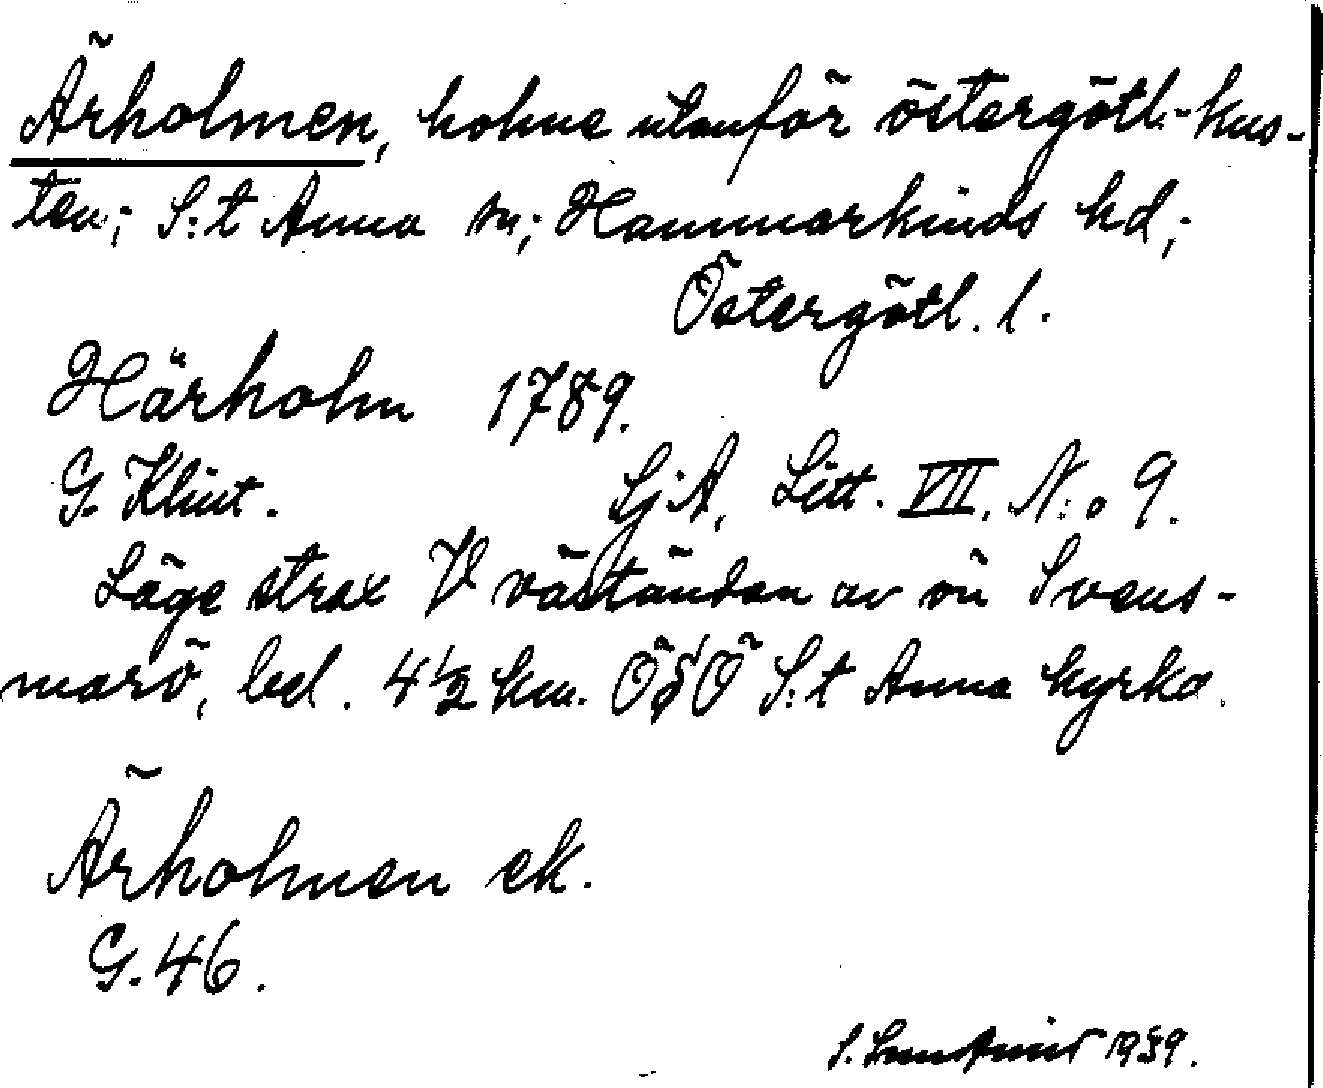 Ärholmen, holme utanför östergötl.-kus-
ten; S:t Anna sn; Hammarkinds hd;
Östergötl. l.
Härholm 1789.
G. Klint. SjA, Litt. VII. N:o 9.
Läge strax V väständan av ön Svens-
marö, bel. 4½ km. ÖSÖ S:t Anna kyrka.
Ärholmen ek.
G. 46.
S. 1939.